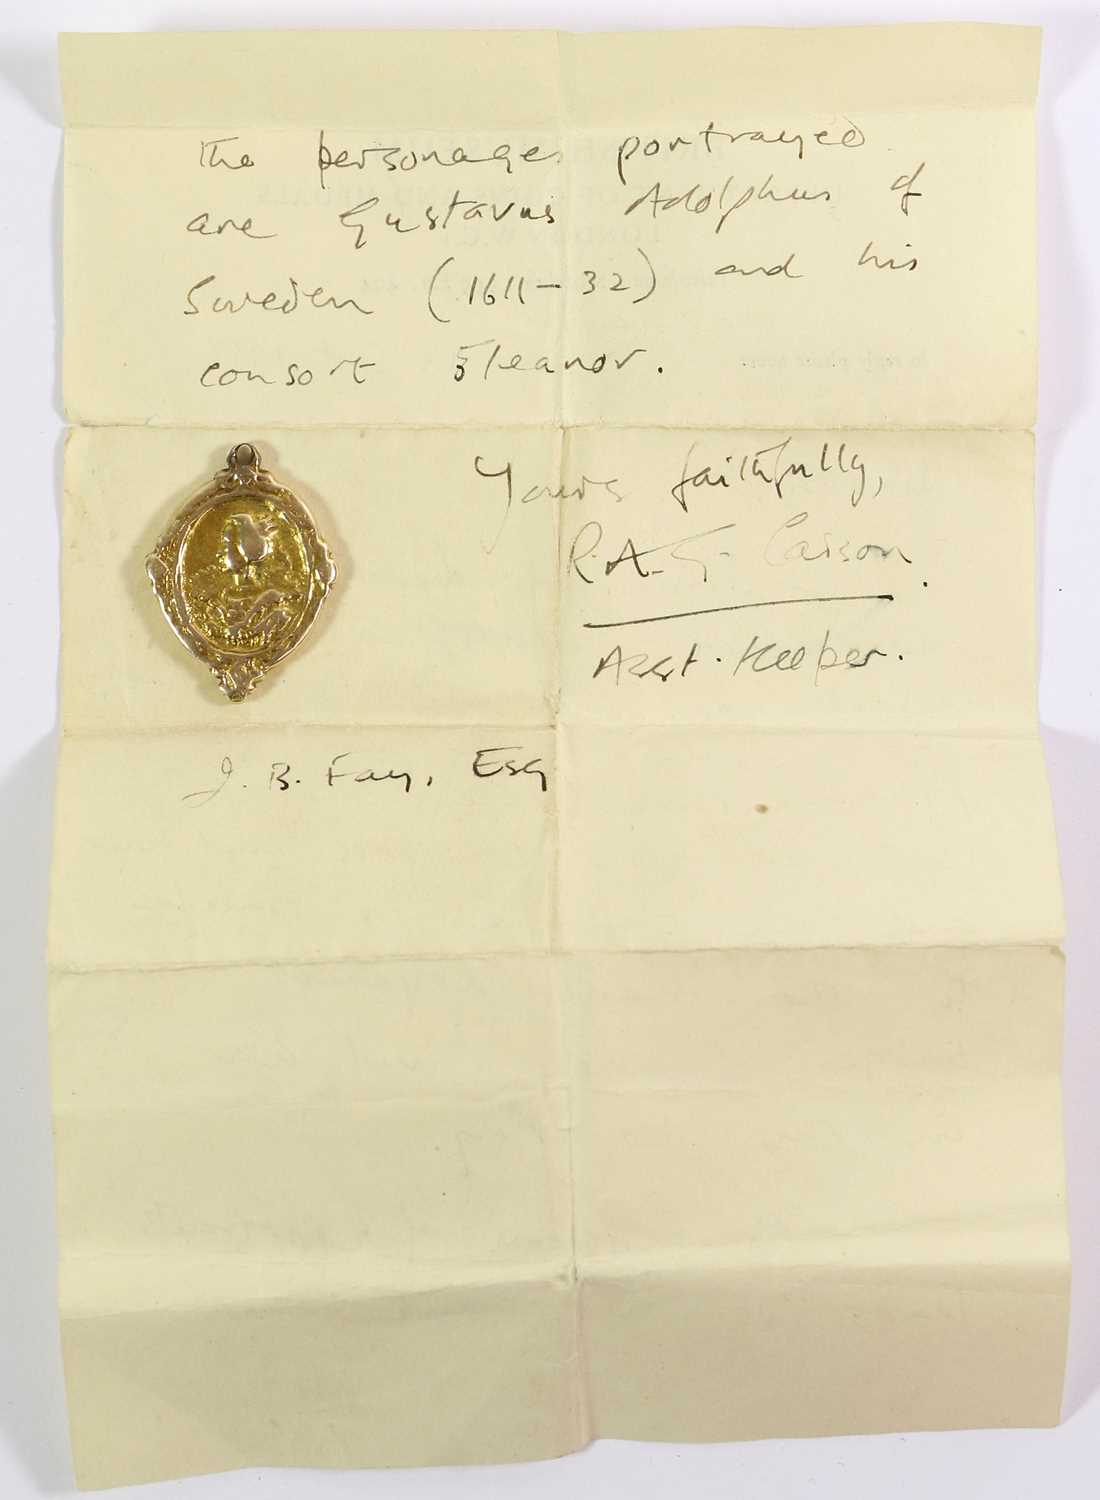 The personages portrayed
are Gustavus Adolphus of
Sweden (1611-32) and his
consort Eleanor.
Yours faithfully,
R.A.G. Carson.
Asst. Keeper.
J. B. Fay, Esq